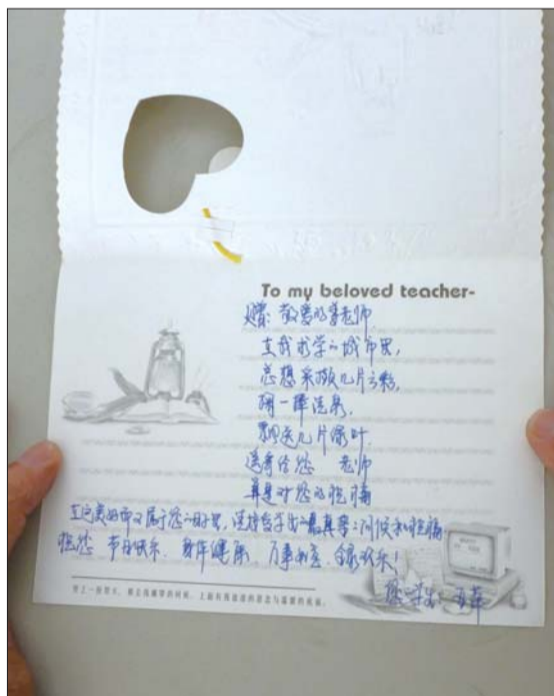 To my beloved teacher-
赠: 敬爱的曹老师
在我求学的城市里,
总想采撷几片云彩,
掬一捧流泉,
剪几片绿叶
遥寄给您 老师
算是对您的祝福
在这美好而又属于您的时里, 送上学生的最真挚的问候和祝福
祝您 节日快乐、身体健康、万事如意、合家欢乐!
您学生